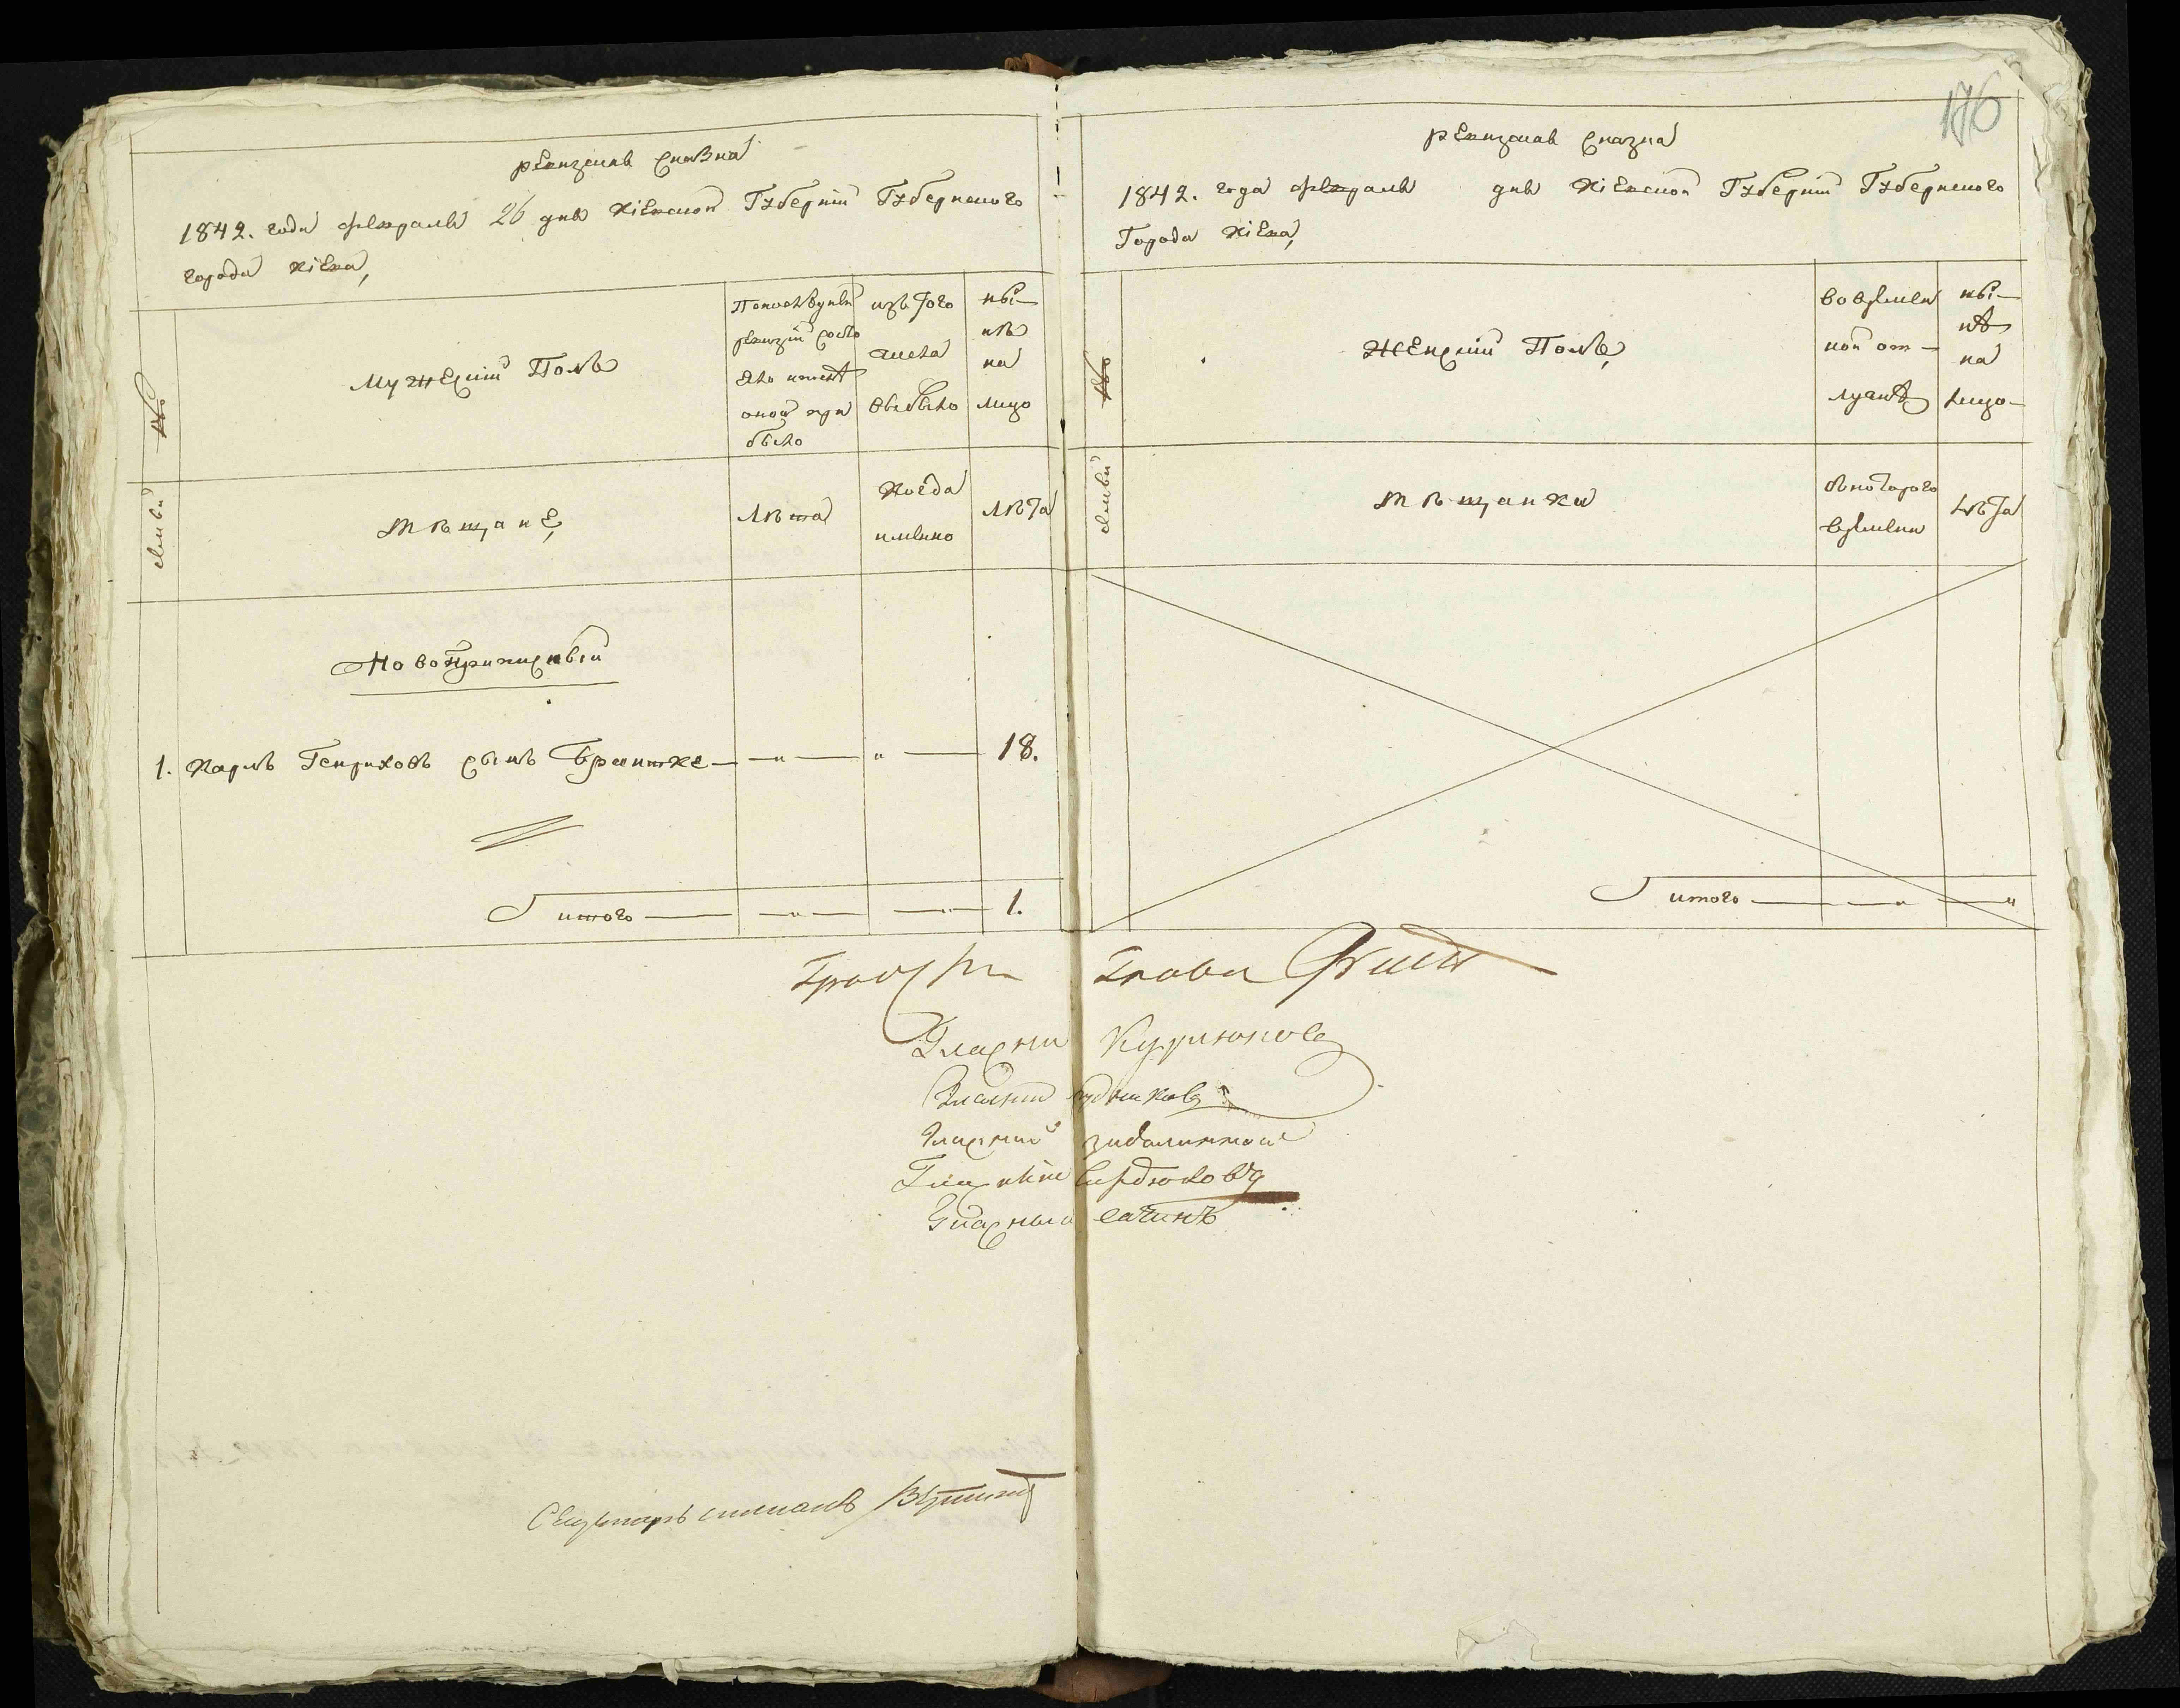 176
ревизская сказка
1842. года февраля 26 дня Кіевской Губерніи Губернского
города Кіева,
№
Мужескій Полъ
По последней
ревизіи состо
яло и после
оной при
было
изъ того
числа
выбыло
ны—
нѣ
на
лицо
семьи
мѣщане,
лѣта
Когда
имянно
лѣта
Новоприписный
1. Карлъ Генриховъ сынъ — „ — „ — 18.
итого — „ — „ — 1.
ревизская сказка
1842. года февраля дня Кіевской Губерніи Губернского
Города Кіева,
№
Женскій Полъ,
во времен
ной от—
лучкѣ
ны—
нѣ
на
лицо—
семьи
мѣщанки
съ которого
времени
лѣта
итого — „ — „
Градскій Глава
Гласный
Гласный
Гласный
Гласный Сердюковъ
Гласный
Секретарь